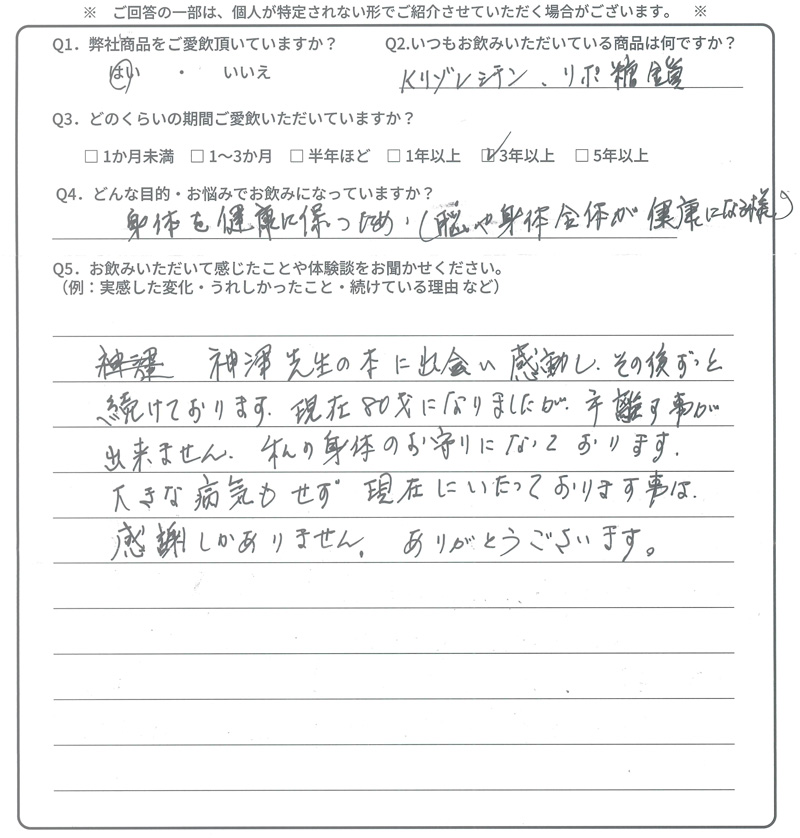 ※ ご回答の一部は、個人が特定されない形でご紹介させていただく場合がございます。 ※
Q1. 弊社商品をご愛飲頂いていますか？ Q2.いつもお飲みいただいている商品は何ですか？
はい ・ いいえ Kリゾレシチン、リポ糖鎖
Q3. どのくらいの期間ご愛飲いただいていますか？
□ 1か月未満 □ 1〜3か月 □ 半年ほど □ 1年以上 ☑ 3年以上 □ 5年以上
Q4. どんな目的・お悩みでお飲みになっていますか？
身体を健康に保つため・(脳や身体全体が健康になる様)
Q5. お飲みいただいて感じたことや体験談をお聞かせください。
（例：実感した変化・うれしかったこと・続けている理由 など）
神澤 神澤先生の本に出会い感動し、その後ずっと
続けております。現在80才になりましたが、手離す事が
出来ません。私の身体のお守りになっております。
大きな病気もせず現在にいたっております事は、
感謝しかありません。ありがとうございます。